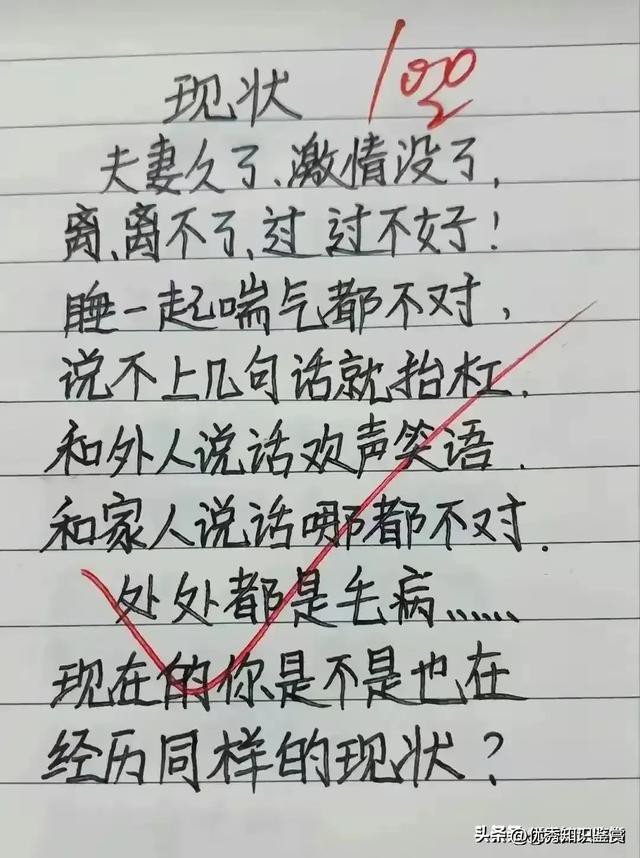 现状
100
夫妻久了、激情没了,
离、离不了、过 过不好!
睡一起喘气都不对,
说不上几句话就抬杠.
和外人说话欢声笑语.
和家人说话哪都不对.
处处都是毛病......
现在的你是不是也在
经历同样的现状?
头条 @优秀知识鉴赏